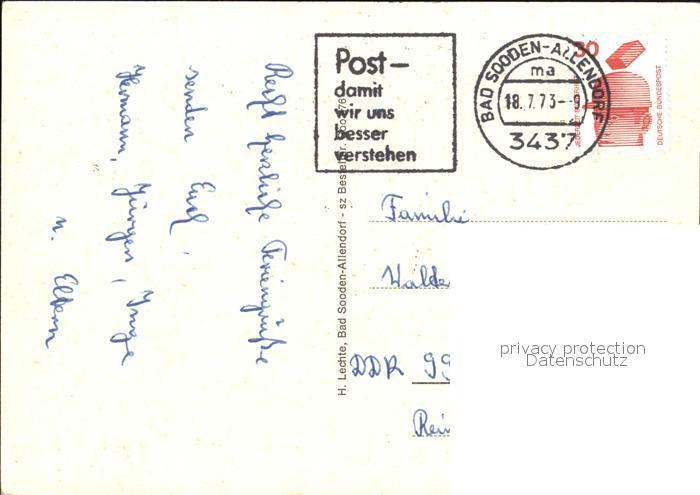 Post –
damit
wir uns
besser
verstehen
BAD SOODEN-ALLENDORF
ma
18.7.73--9
3437
30
DEUTSCHE BUNDESPOST
Recht herzliche Feriengrüße
senden Euch,
Hermann, Jürgen, Inge
u. Eltern
H. Lechte, Bad Sooden-Allendorf - sz Bestell
Familie
Walde
DDR 99
Rei
privacy protection
Datenschutz